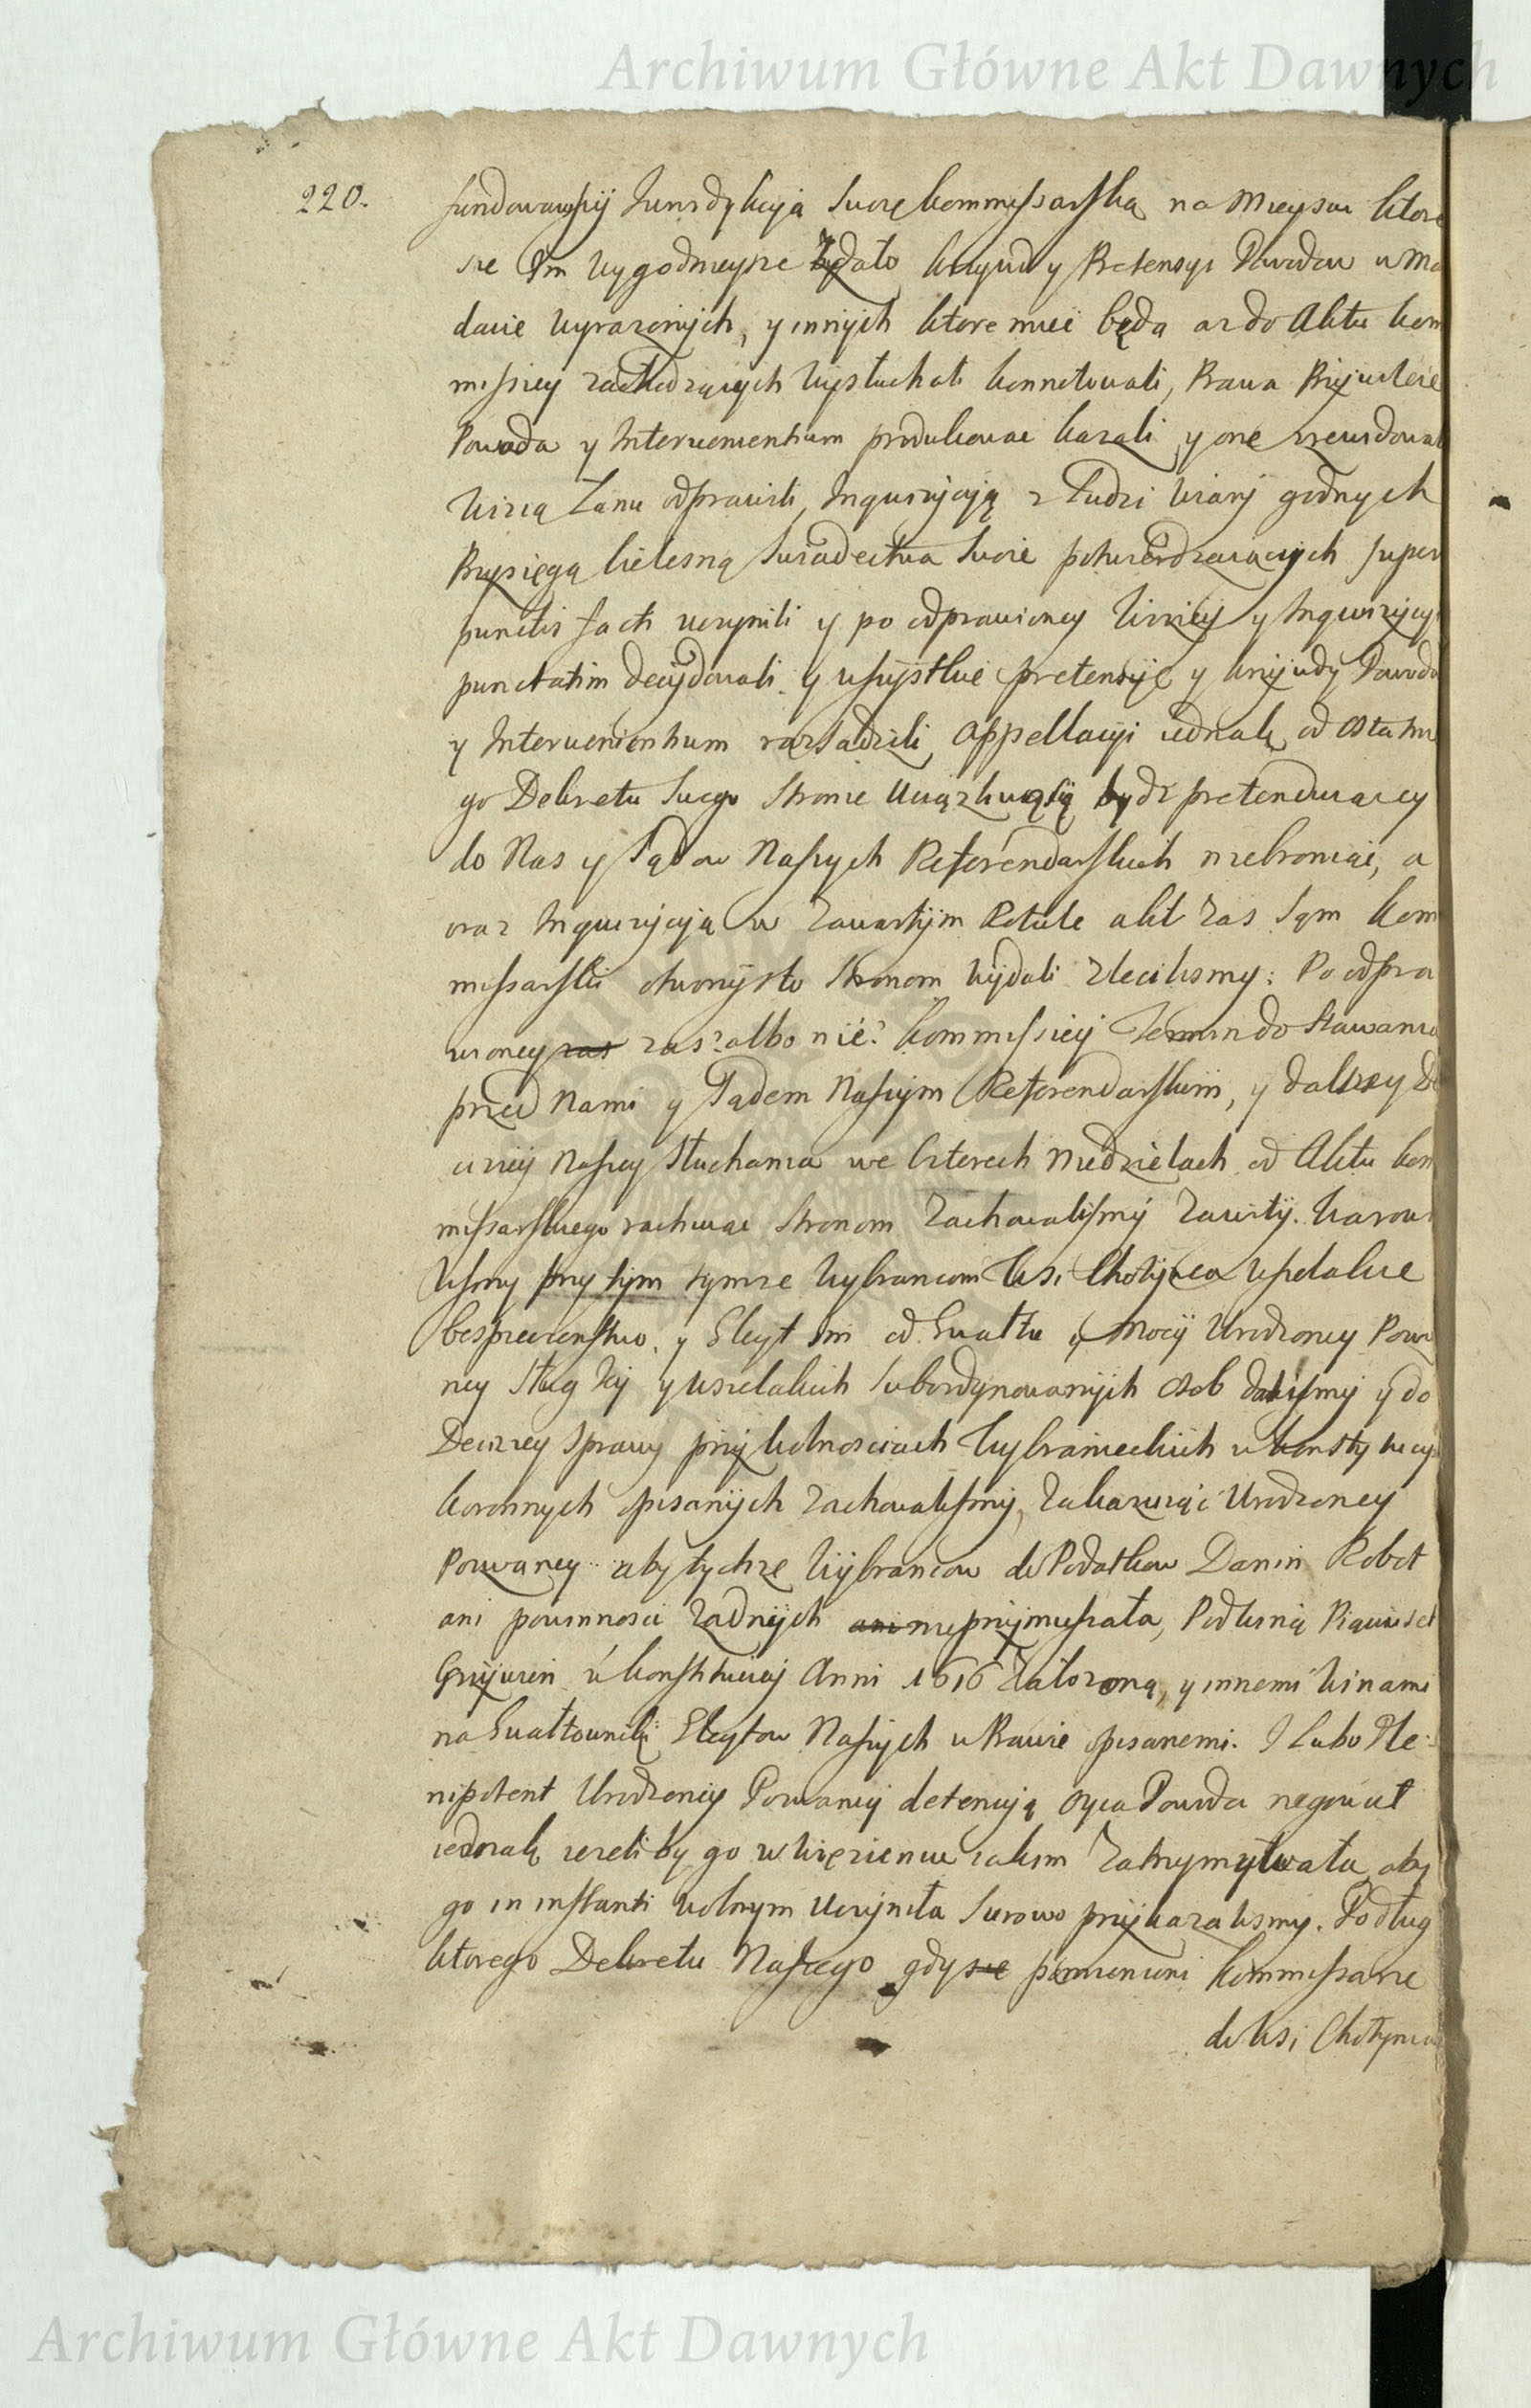 Archiwum Główne Akt Dawnych
220.
fundowawszy Jurisdykcyą Swoię kommissarską na Mieyscu ktore
sie Im wygodnieysze zdało krzywd y Pretensyi Powodow w Man
dacie wyrazonych, y innych ktore miec będą az do Aktu kom
missiey zachodzących wysłuchali konnotowali, Prawa Przywileie
Powoda y Intervenientium produkowac kazali, y one zrewidowali
wizią Lanu odprawili, Inquizycyią z Ludzi wiary godnych
Przysięgą cielesną Swiadectwa Swoie potwierdzaiących super
punctis facti uczynili y po odprawioney wiziey y Inquizycyi
punctatim decydowali y wszystkie pretensye y krzywdy Powoda
y Intervenientium rozsądzili, Appellacyi iednak od ostatnie
go Dekretu Swego Stronie uciązliwością bydz pretenduiącey
do Nas y Sądow Naszych Referendarskich niebroniąc, a
oraz Inquizycyią w zawartym Rotule akt zas Sąm kom
missarski otworzysto Stronom wydali zlecilismy: Po odpra
wioney zas? albo nie? kommissiey Termin do Stawania
przed Nami y Sądem Naszym Referendarskim, y dalszey De
ciziey Naszey Słuchania we Czterech Niedzielach od Aktu kom
missarskiego rachuiąc Stronom zachowalismy zawity. Warowa
lismy przy tym tymze Wybrancom wsi Chotynca wszelakie
bespieczenstwo, y Gleyt Im od Gwałtu y Mocy Urodzoney Pozwa
ney Sług Jey y wszelakich Subordynowanych osob dalismy y do
Decizyey sprawy przy wolnosciach Wybranieckich w konstytucyi
koronnych opisanych zachowalismy, zakazuiąc Urodzoney
Pozwaney aby tychze Wybrancow do Podatkow Danin Robot
ani powinnosci zadnych ani nieprzymuszała, Pod winą Pięciuset
Grzywien w konstituciey Anni 1616 załozoną, y innemi winami
na Gwałtowniki Gleytow Naszych w Prawie opisanemi. I lubo Ple-
nipotent Urodzoney Pozwaney detencyą Oyca Powoda negował
iednak iezeli by go w więzieniu iakim zatrzymywała, aby
go in instanti wolnym uczyniła Surowo przykazalismy. Podług
ktorego Dekretu Naszego gdy sie pomienieni kommissarze
do wsi Chotynca
Archiwum Główne Akt Dawnych